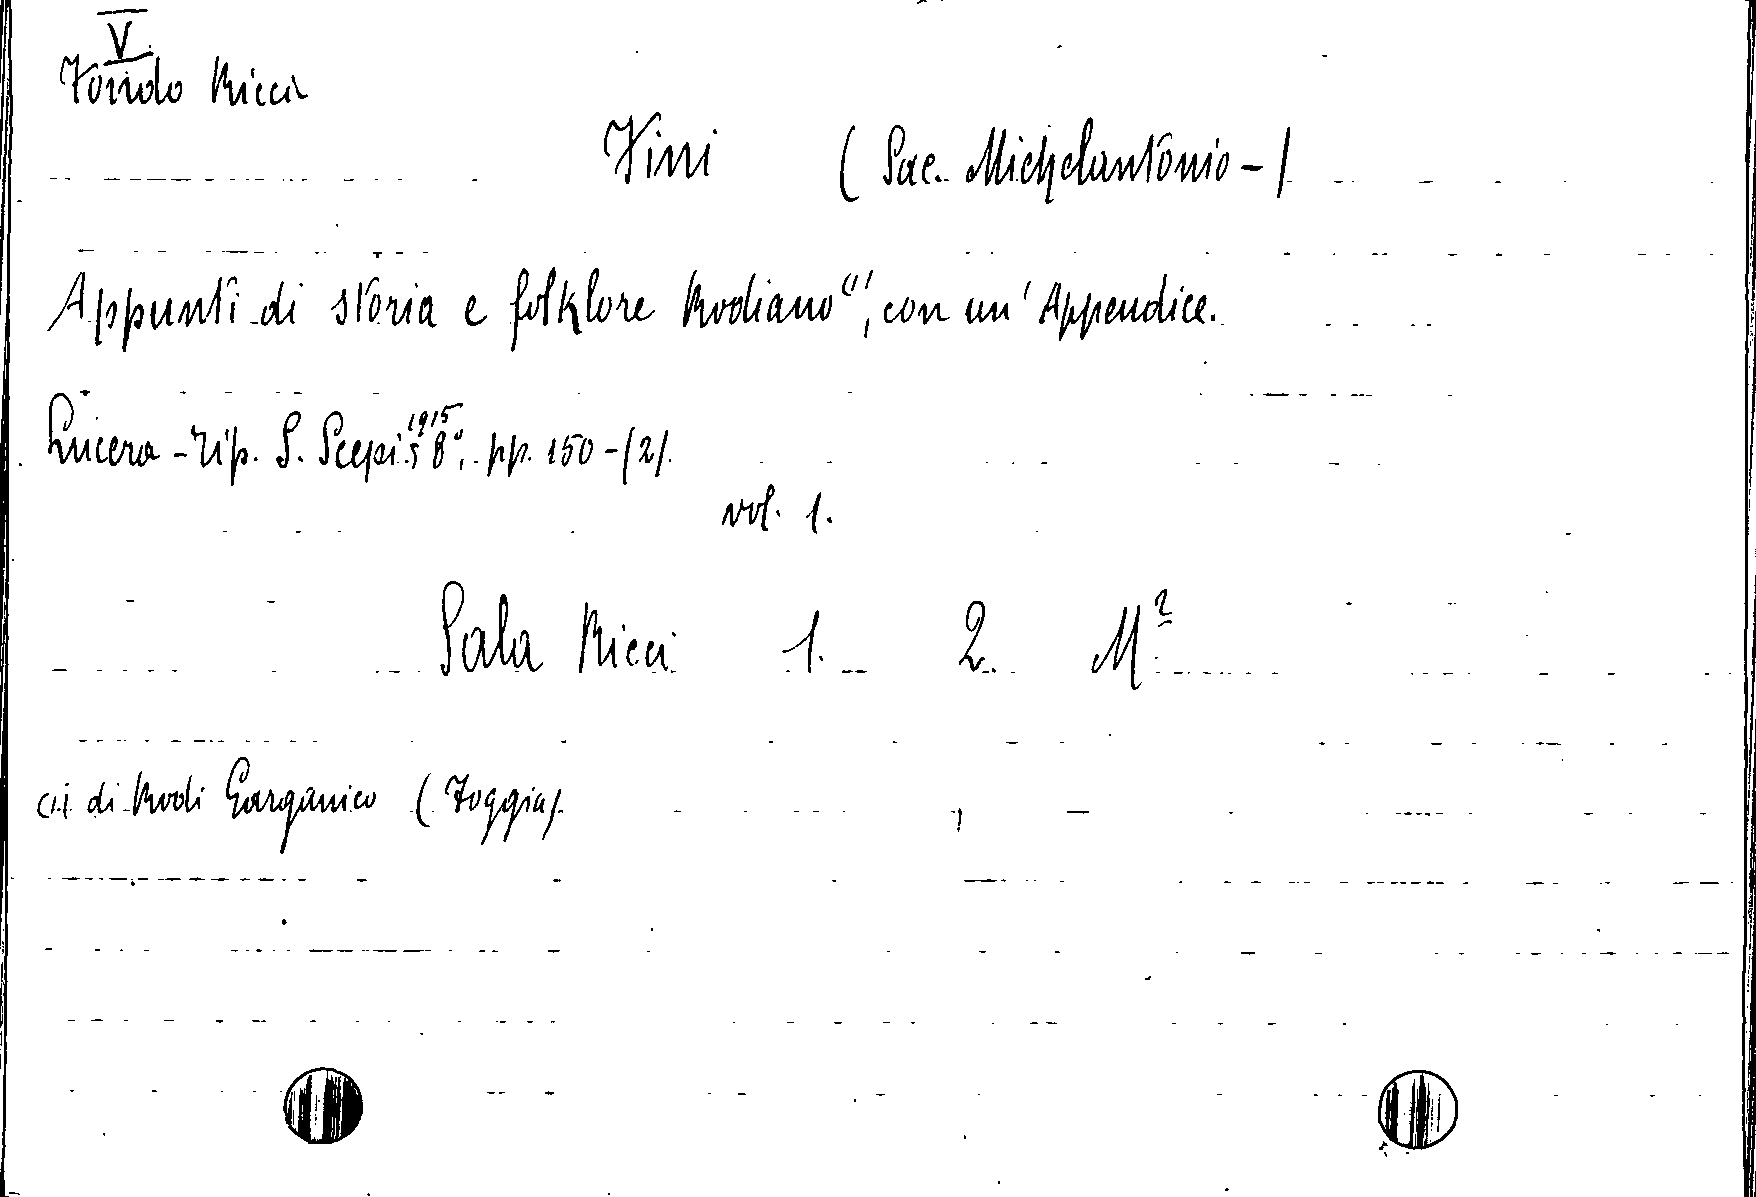 V
Fondo Ricci
Fini (Sac. Michelantonio-)
Appunti di storia e folklore Rodiano (1), con un' Appendice.
Lucera - Tip. S. Scepi 1915 8°, pp. 150-(2).
vol. 1.
Sala Ricci 1. 2. M²
(1) di Rodi Garganico (Foggia).